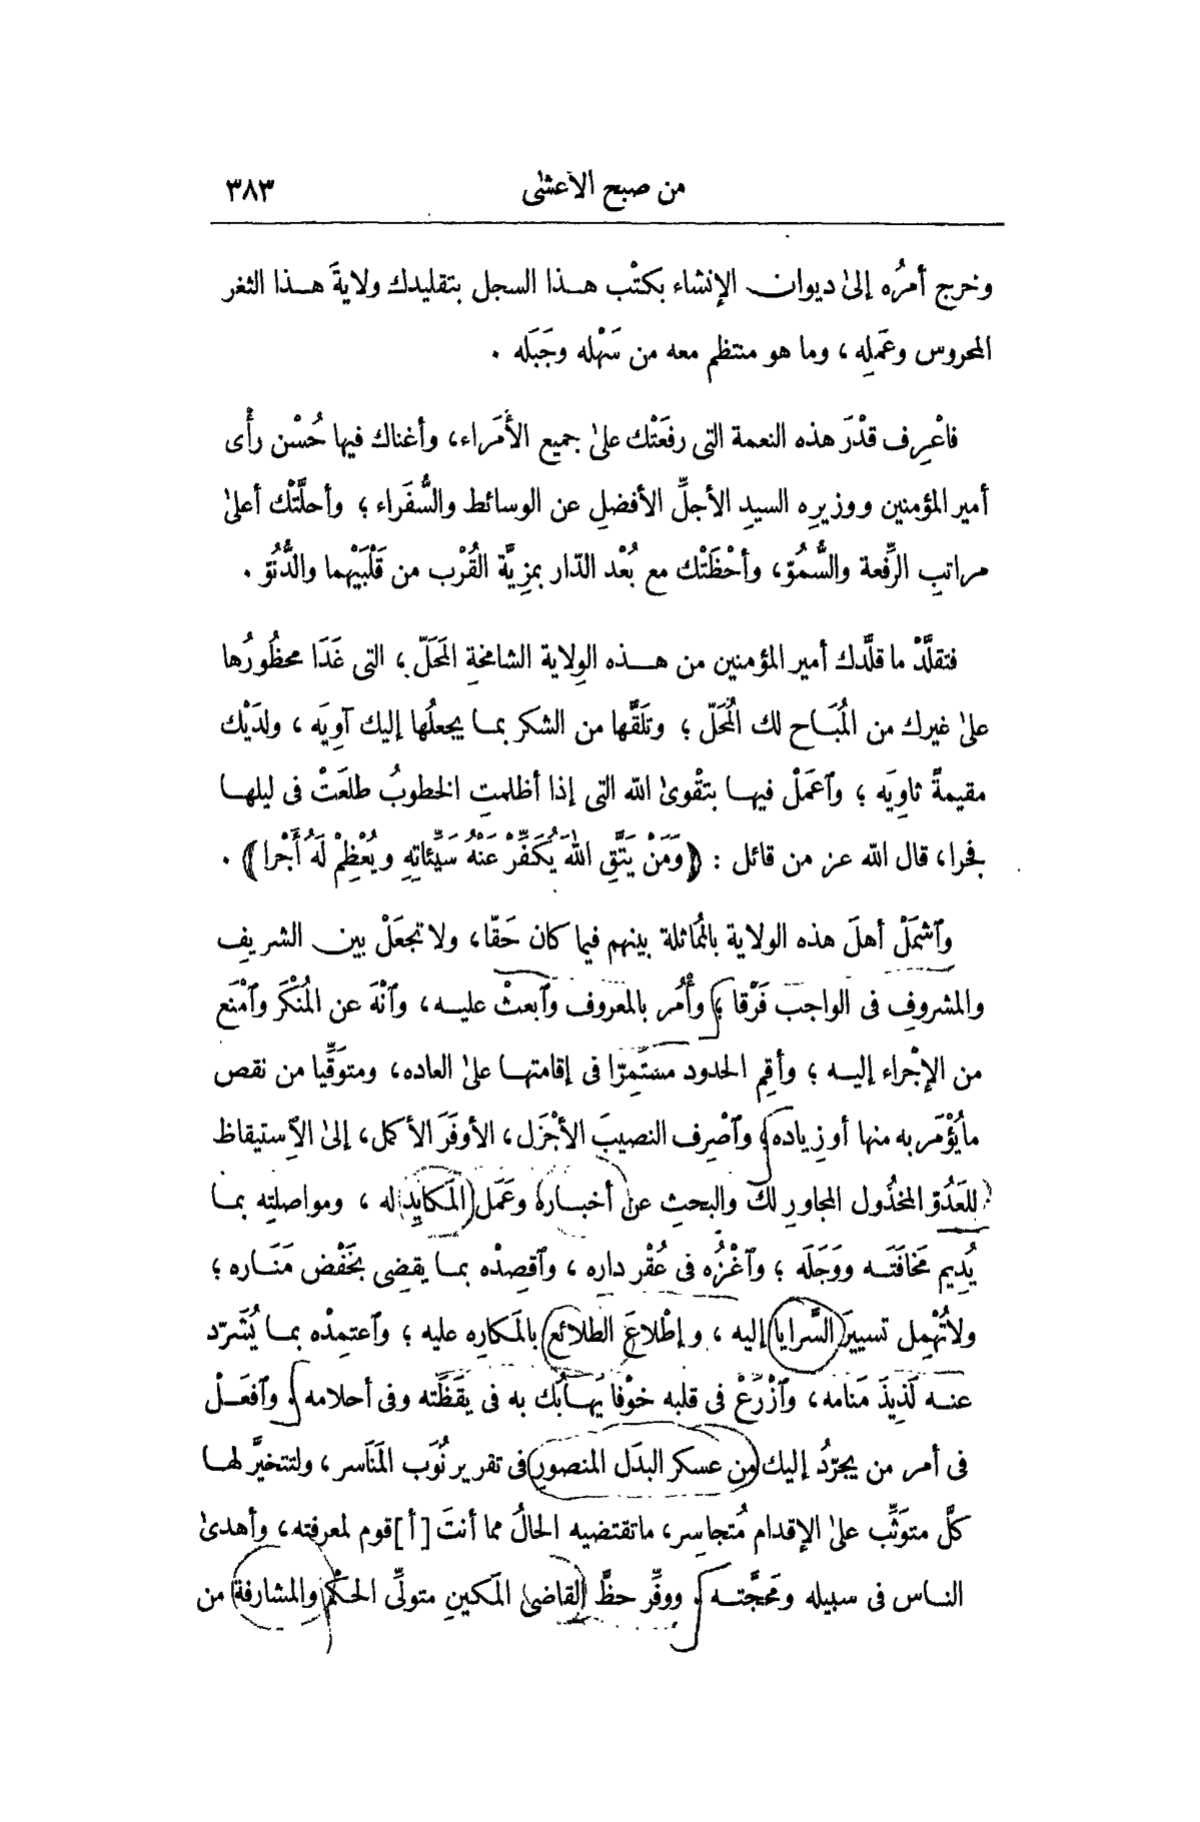 من صبح الأعشىٰ ٣٨٣
وخرج أمرُه إلىٰ ديوان الإنشاء بكتْب هذا السجل بتقليدك ولايةَ هذا الثغر
المحروس وعَمَلِه ، وما هو منتظم معه من سَهْله وجَبَله .
فاعْرِف قدْرَ هذه النعمة التى رفعَتْك علىٰ جميع الأُمَراء، وأغناك فيها حُسْن رأْى
أمير المؤمنين ووزيرِه السيدِ الأجلِّ الأفضلِ عن الوسائط والسُّفَراء ؛ وأحلَّتْك أعلىٰ
مراتبِ الرِّفعة والسُّمُوّ، وأحْظَتْك مع بُعْد الدّار بمزِيَّة القُرْب من قَلْبَيْهما والدُّنُوّ .
فتقلَّدْ ما قلَّدك أمير المؤمنين من هذه الوِلاية الشامخةِ المَحَلّ ، التى غَدَا محظُورُها
علىٰ غيرك من المُبَاح لك المُحَلّ ؛ وتلَقَّها من الشكر بما يجعلُها إليك آوِيَه ، ولدَيْك
مقيمةً ثاوِيَه ؛ وٱعمَلْ فيها بتقْوىٰ الله التى إذا أظلمتِ الخطوبُ طلعَتْ فى ليلها
فجرا، قال الله عز من قائل : ﴿وَمَنْ يَتَّقِ اللهَ يُكَفِّرْ عَنْهُ سَيِّئاتِهِ ويُعْظِمْ لَهُ أَجْرا﴾ .
وٱشمَلْ أهلَ هذه الولاية بالمُماثلة بينهم فيما كان حَقّا، ولا تجعَلْ بين الشريفِ
والمشروفِ فى الواجب فَرْقا ؛ وأْمُر بالمعروف وٱبعثْ عليه، وٱنْهَ عن المُنْكَر وٱمْنَع
من الإجْراء إليه ؛ وأقِمِ الحدود مستَمِرّا فى إقامتها علىٰ العاده، ومتوَقِّيا من نقص
مايُؤْمَر به منها أو زِياده؛ وٱصْرِف النصيبَ الأجْزَل، الأوفَرَ الأكمل، إلىٰ الٱستيقاظ
للعَدُوّ المخذُول المجاورِ لك والبحثِ عن أخباره وعَمَل المَكايِدِ له ، ومواصلتِه بما
يُدِيم مَخافَتَه ووَجَلَه ؛ وٱغْزُه فى عُقْر داره ، وٱقصِدْه بما يقضِى بخَفْض مَنَاره ؛
ولاتُهْمِل تسييرَ السَّرايا إليه ، وإطْلاعَ الطلائع بالمَكارِه عليه ؛ وٱعتمِدْه بما يُشَرِّد
عنه لَذِيذَ مَنامه، وٱزْرَعْ فى قلبه خوْفا يَهابُك به فى يقَظَته وفى أحلامه . وٱفعَلْ
فى أمر من يجرَّدُ إليك من عسكر البدَل المنصورِ فى تقرير نُوَب المَنَاسر، ولتتخيَّر لها
كلَّ متوَثِّب علىٰ الإقدام مُتجاسِر، ماتقتضيه الحالُ مما أنتَ [أ]قوم لمعرفته، وأهدىٰ
الناس فى سبيله ومَحجَّته . ووفِّر حظَّ القاضى المَكينِ متولِّى الحكْم والمشارفة من